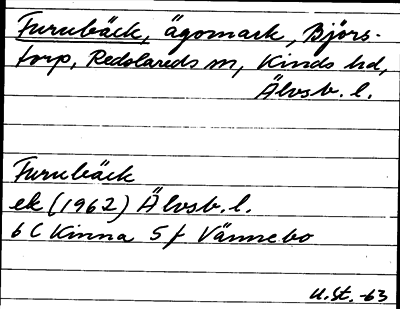 Furubäck, ägomark, Björs-
torp, Redslareds sn, Kinds hd,
Älvsb. l.
Furubäck
ek (1962) Älvsb. l.
6 C Kinna 5 f Vännebo
U.St. -63